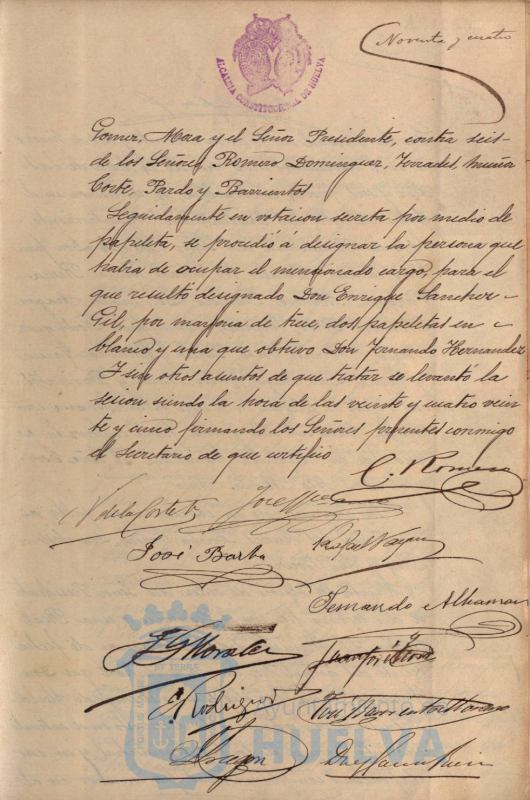 Noventa y cuatro
ALCALDIA CONSTITUCIONAL DE HUELVA
Gomez, Mora y el Señor Presidente, contra seis
de los Señores Romero Dominguez, Terrades, Muñoz
Corte, Pardo y Barrientos
Seguidamente en votacion secreta por medio de
papeleta, se procedió á designar la persona que
habia de ocupar el mencionado cargo, para el
que resultó designado Don Enrique Sanchez
Gil, por mayoria de trece, dos papeletas en
blanco y una que obtuvo Don Fernando Hernandez
Y sin otros asuntos de que tratar se levantó la
sesion siendo la hora de las veinte y cuatro vein
te y cinco firmando los Señores presentes conmigo
el Secretario de que certifico
C. Romero
N de la Corte
José
José Barba
Rafael
Fernando Alhaman
Morales
Rodriguez
José Barrientos
Ayuntamiento
HUELVA